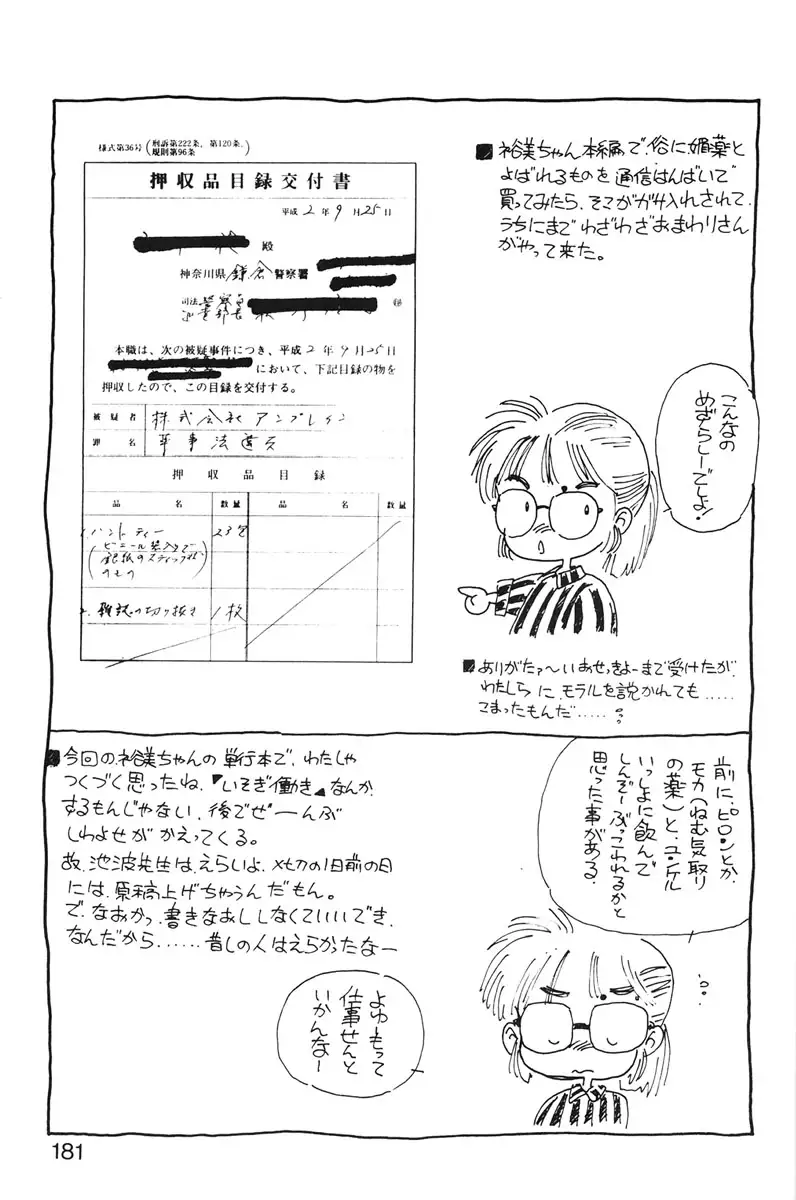 ■裕美ちゃん本編で、俗に媚薬と
よばれるものを通信はんばいで
買ってみたら、そこがガサ入れされて、
うちにまでわざわざおまわりさん
がやって来た。
様式第36号(刑訴第222条、第120条、
規則第96条)
押収品目録交付書
平成2年9月25日
殿
神奈川県鎌倉警察署
司法警察員
巡査部長
㊞
本職は、次の被疑事件につき、平成2年9月25日
において、下記目録の物を
押収したので、この目録を交付する。
被疑者 株式会社アンプレイン
罪名 薬事法違反
押収品目録
品名 数量 品名 数量
1. ハントティー 23包
(ビニール袋入り
銀紙のスティック状
のもの)
2. 雑誌の切り抜き 1枚
こんなの
めずらしーでしょ!
■ありがたァ〜いおせっきょーまで受けたが、
わたしらに、モラルを説かれても.....
こまったもんだ.....。
前に、ピロンとか
モカ(ねむ気取り
の薬)と、ユンケル
いっしょに飲んで
しんぞーぶっこわれるかと
思った事がある。
■今回の裕美ちゃんの単行本で、わたしゃ
つくづく思ったね、『いそぎ働き』なんか
するもんじゃない、後でぜーんぶ
しわよせがかえってくる。
故、池波先生は、えらいよ、〆切の1日前の日
には、原稿上げちゃうんだもん。
で、なおかつ、書きなおししなくていいでき、
なんだから......昔しの人はえらかったなー
よゆーもって
仕事せんと
いかんなー
181